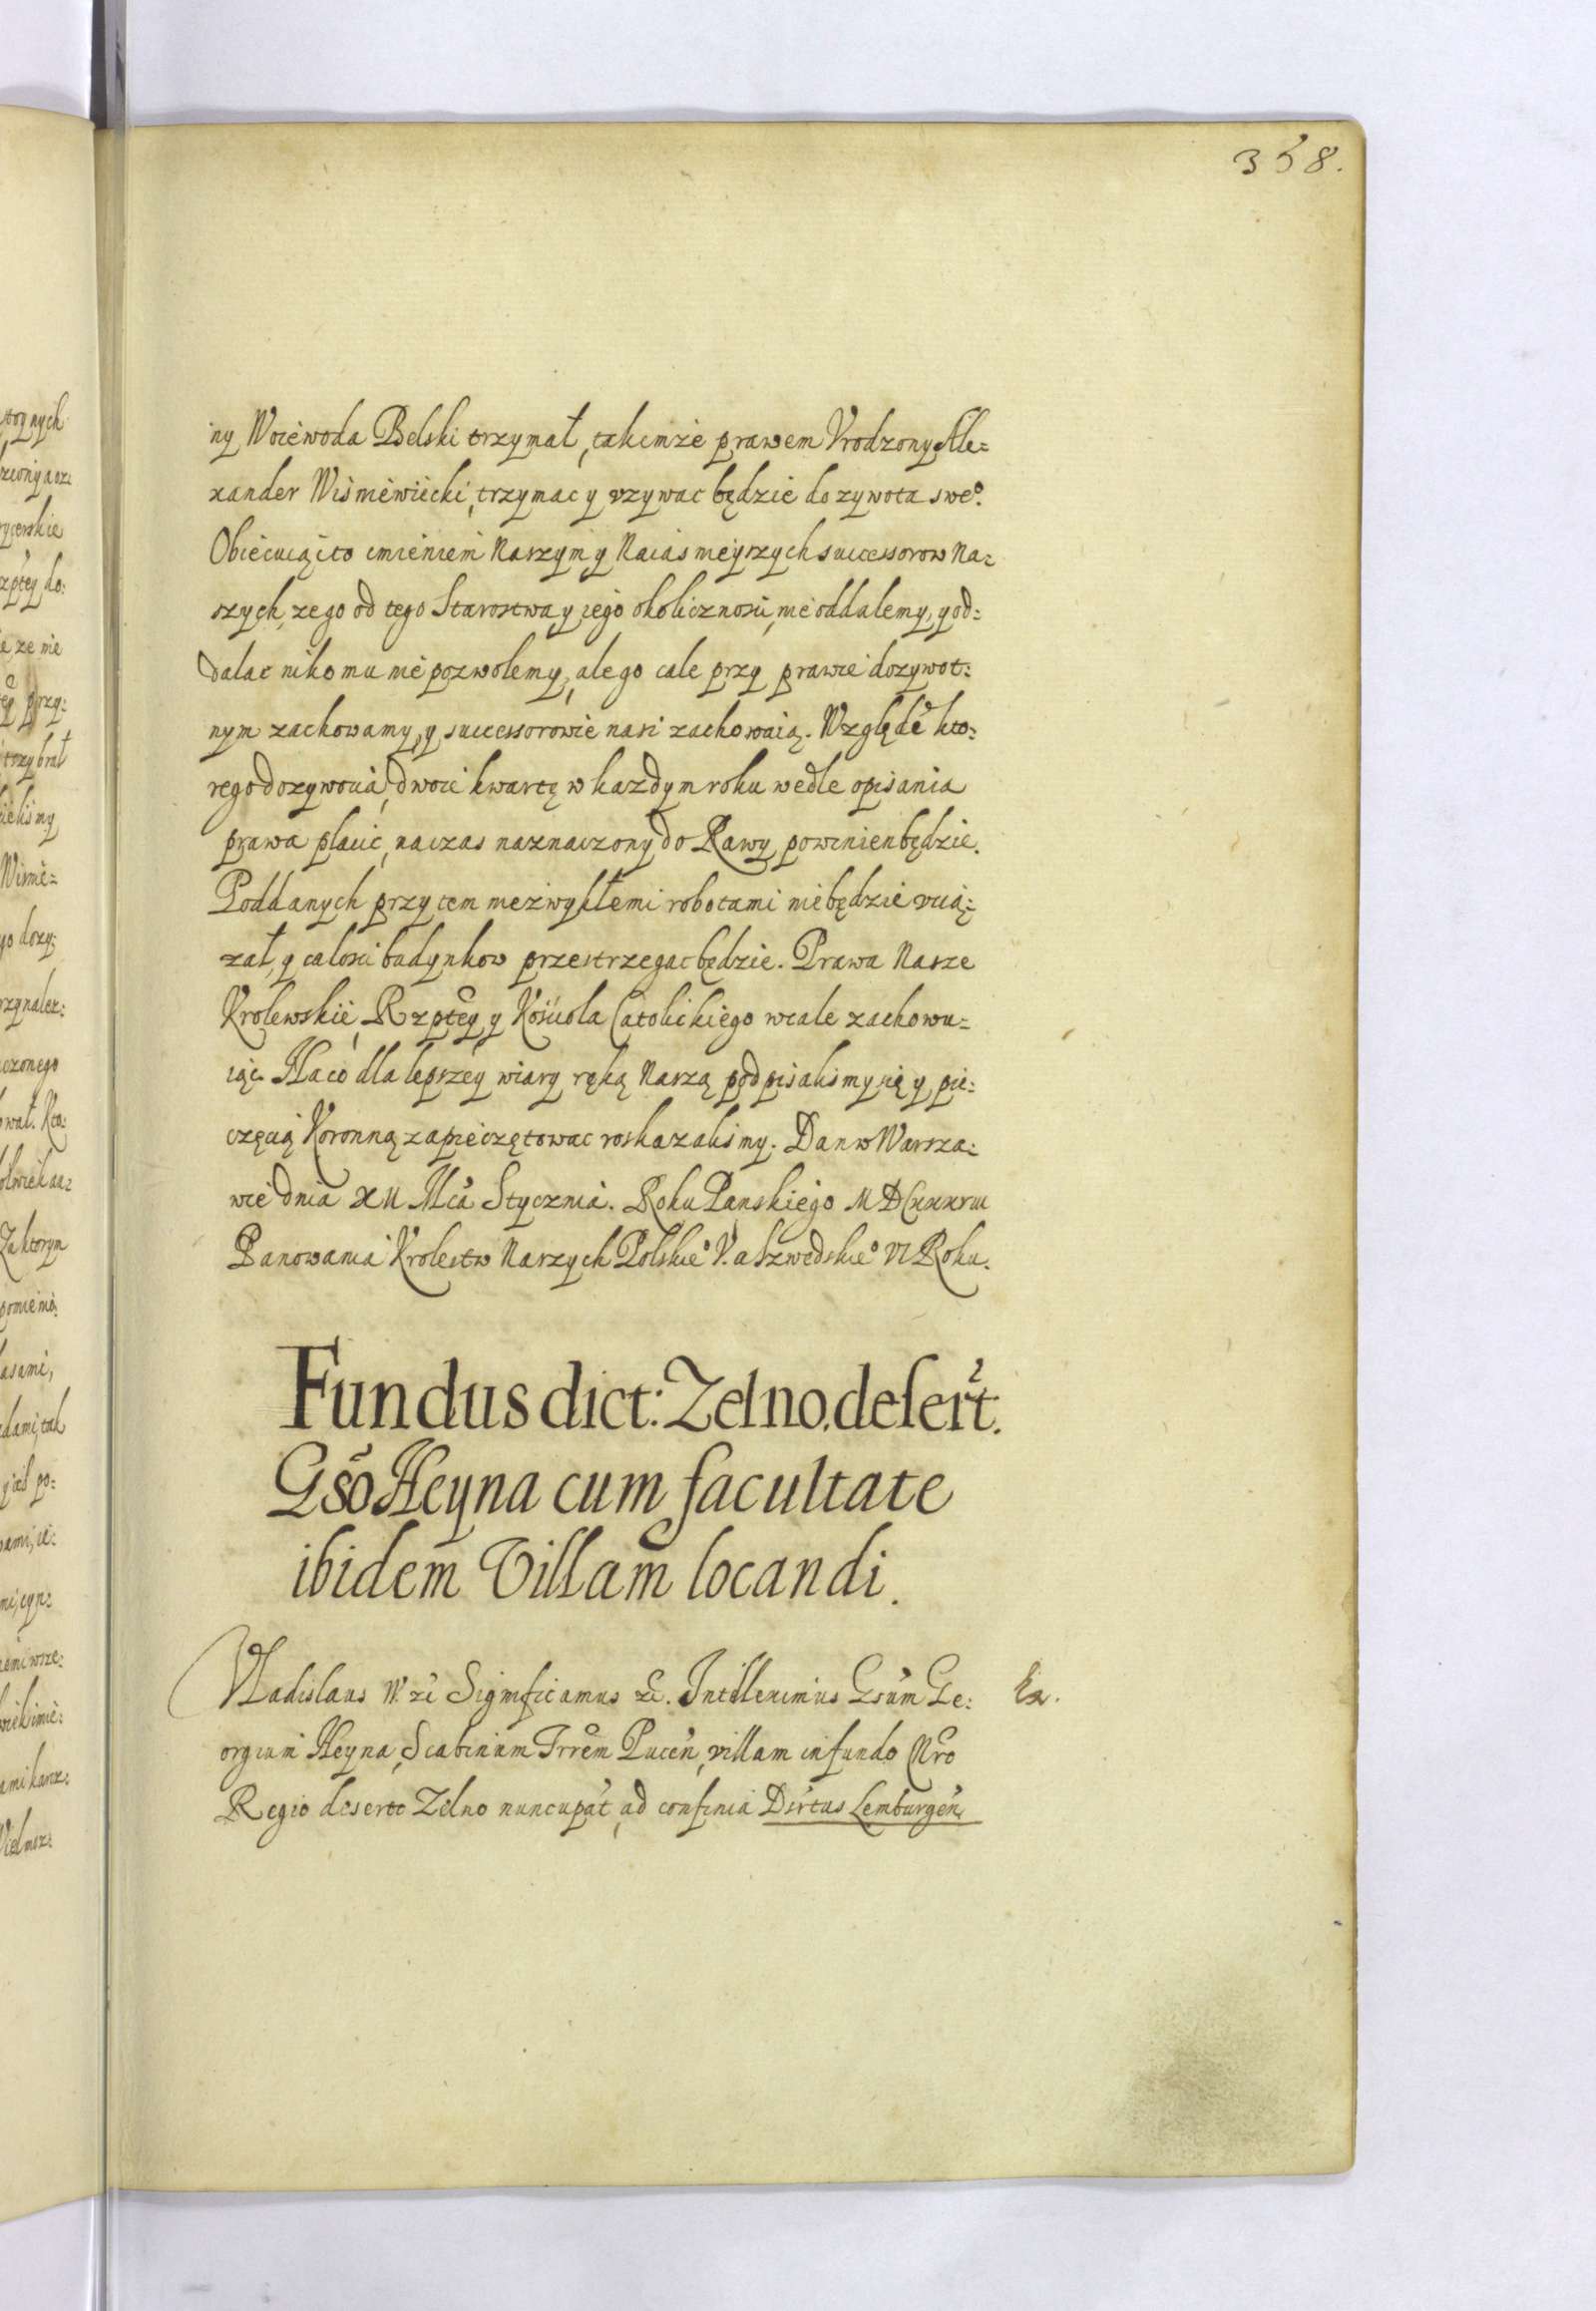 358.
ny Woiewoda Belski trzymał, takimze prawem Vrodzony Ale-
xander Wisniewiecki, trzymac y vzywac będzie do zywota sweo.
Obiecuiąc to imieniem Naszym y Naiasnieyszych successorow Na-
szych, ze go od tego Starostwa y iego okolicznosci, nie oddalemy, y od-
dalac nikomu nie pozwolemy, ale go cale przy prawie dozywot-
nym zachowamy, y successorowie nasi zachowaią. Względe kto-
rego dozywocia, dwoie kwartę w kazdym roku wedle opisania
prawa placic, na czas naznaczony do Rawy powinien będzie.
Poddanych przytem niezwykłemi robotami nie będzie vcią-
zał, y calosci budynkow przestrzegac będzie. Prawa Nasze
Krolewskie, Rzptey y Kosciola Catolickiego wcale zachowu-
iąc. Na co dla lepszey wiary ręką Naszą podpisalismy się y pie-
częcią Koronną zapieczętowac roskazalismy. Dan w Warsza-
wie dnia XII Mca Stycznia. Roku Panskiego MDCXXXVIII
Panowania Krolestw Naszych Polskieo V. a Szwedskieo VI Roku.
Fundus dict: Zelno. desert.
Gso Heyna cum facultate
ibidem Villam locandi.
Vladislaus IV. zc Significamus zc. Intelleximus Gsum Ge-
Ex.
orgium Heyna, Scabinum Trrem Pucen, villam in fundo Nro
Regio deserto Zelno nuncupat, ad confinia Dirtus Lemburgen